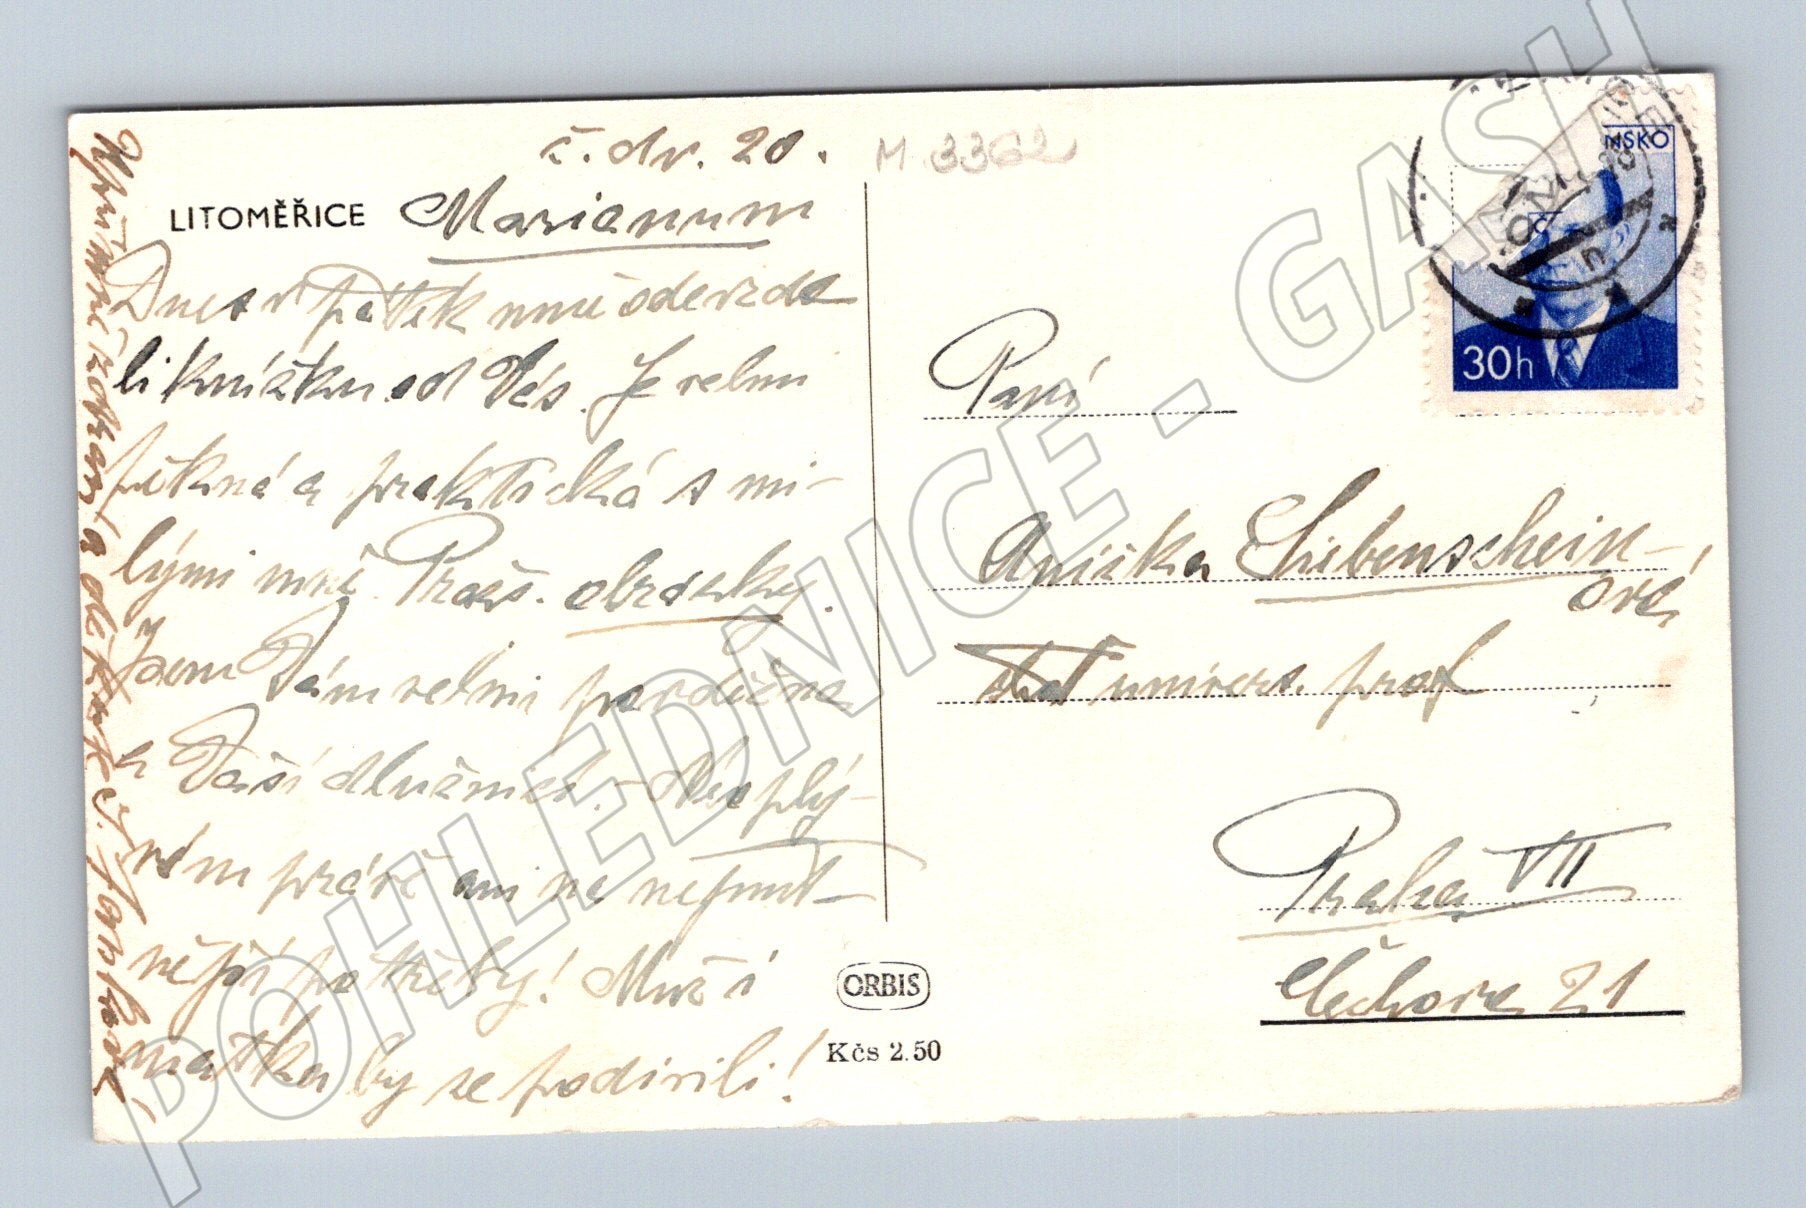 č. dv. 20.
M 3362
LITOMĚŘICE Marianum
Dnes v pátek mně odevzda
li knížku od Vás. Je velmi
pěkná a praktická s mi-
lými mně Praž. obrázky.
Jsem Vám velmi povděčna
a Vaší dlužnicí. - Neoplý-
vám prý ani na nejnut-
nější potřeby! Muž i
matka by se podivili!
Upřímně
a děkuje
ORBIS
Kčs 2.50
NSKO
30h
Paní
Anička Liebenschein-
ová
univers. prof
Praha VII
Čechova 21
POHLEDNICE - GASH